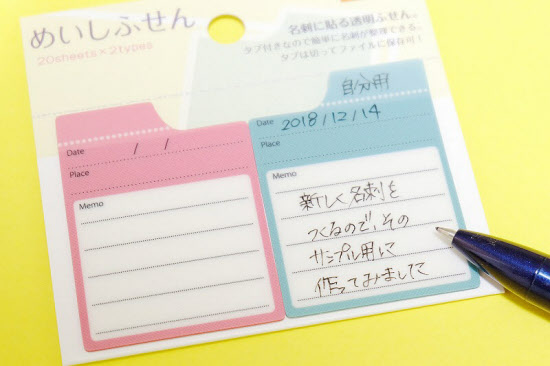 めいしふせん
20sheets×2types
名刺に貼る透明ふせん。
タブ付きなので簡単に名刺が整理できる。
タブは切ってファイルに保存可！
Date / /
Place
Memo
自分用
Date 2018/12/14
Place
Memo
新しく名刺を
つくるので、その
サンプル用に
作ってみまして